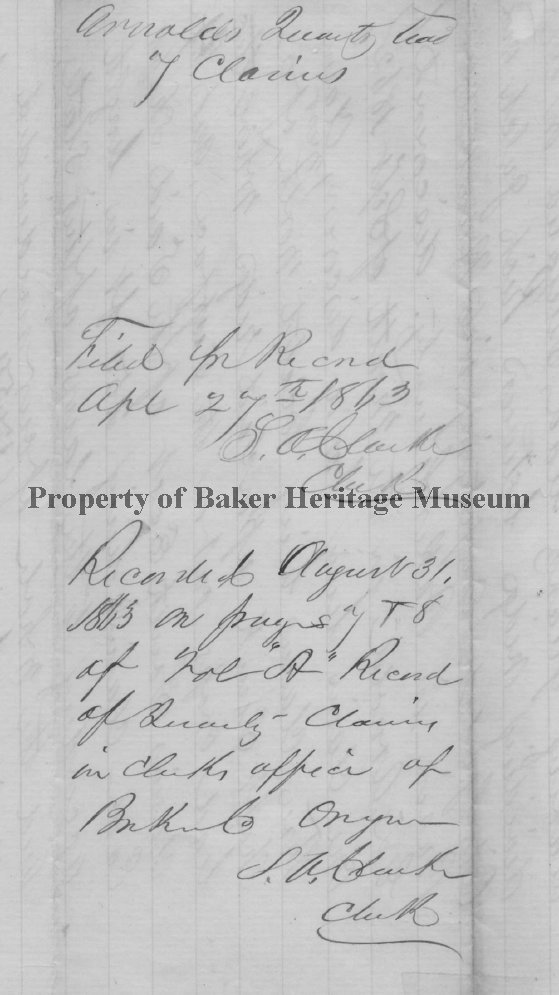 Arnolds Quartz Lead
7 Claims
Filed for Record
Apl 27th 1863
S. A. Clarke
Clerk
Property of Baker Heritage Museum
Recorded August 31,
1863 on pages 7 + 8
of Vol "A" Record
of Quartz Claims
in Clerks office of
Baker Co Oregon
S. A. Clarke
Clerk